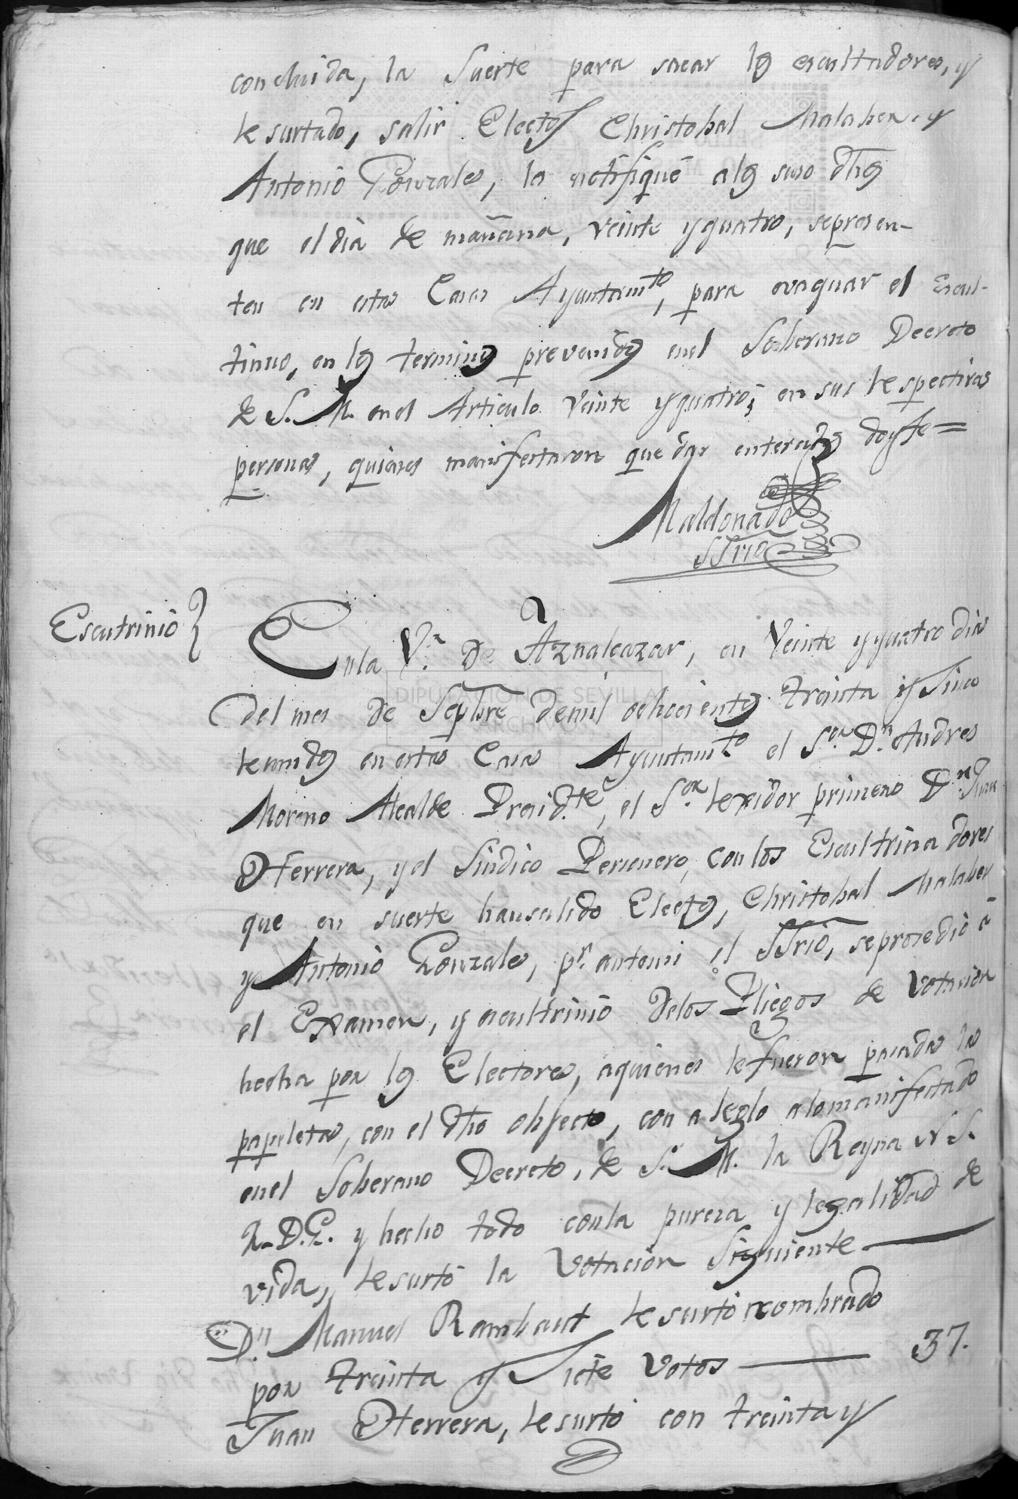 concluida, la Suerte para sacar los escultadores, y
resurtado, salir Electos Christobal Malaber, y
Antonio Gonzales, les notifiqué a los suso dhos
que el dia de mañana, veinte y quatro, se presen-
ten en estas Casas Ayuntamto, para evaquar el Escul-
tinuo, en los terminos prevenidos en el Soberano Decreto
de S. M. en el Articulo veinte y quatro; en sus respectivas
personas, quienes manifestaron quedar enterados doy fe =
Maldonado
SSrio
Escutrinio
En la Va. De Aznalcazar, en Veinte y quatro dias
del mes de Septbre de mil ochocientos treinta y Sinco
reunidos en estas Casas Ayuntamto el Sor. Dn. Andres
Moreno Alcalde Presidte, el Sor. rexidor primero Dn. Juan
Herrera, y el Sindico Personero, con los Escultrinadores
que en suerte han salido Electos, Christobal Malaber
y Antonio Gonzales, pr. ante mi el SSrio, se prosedió á
el Examen, y escultrinio de los Pliegos de Votacion
hecha por los Electores, a quienes le fueron pasadas las
papeletas, con el dho objecto, con areglo a lo manifestado
en el Soberano Decreto, de S. M. la Reyna N. S.
Q. D. G. y hecho todo con la pureza y legalidad de
vida, resurtó la Votacion Siguiente
Dn. Manuel Rambaut resurtó nombrado
por treinta y Siete Votos 37.
Juan Herrera, resurtó con treinta y
DIPUTACION DE SEVILLA
ARCHIVO